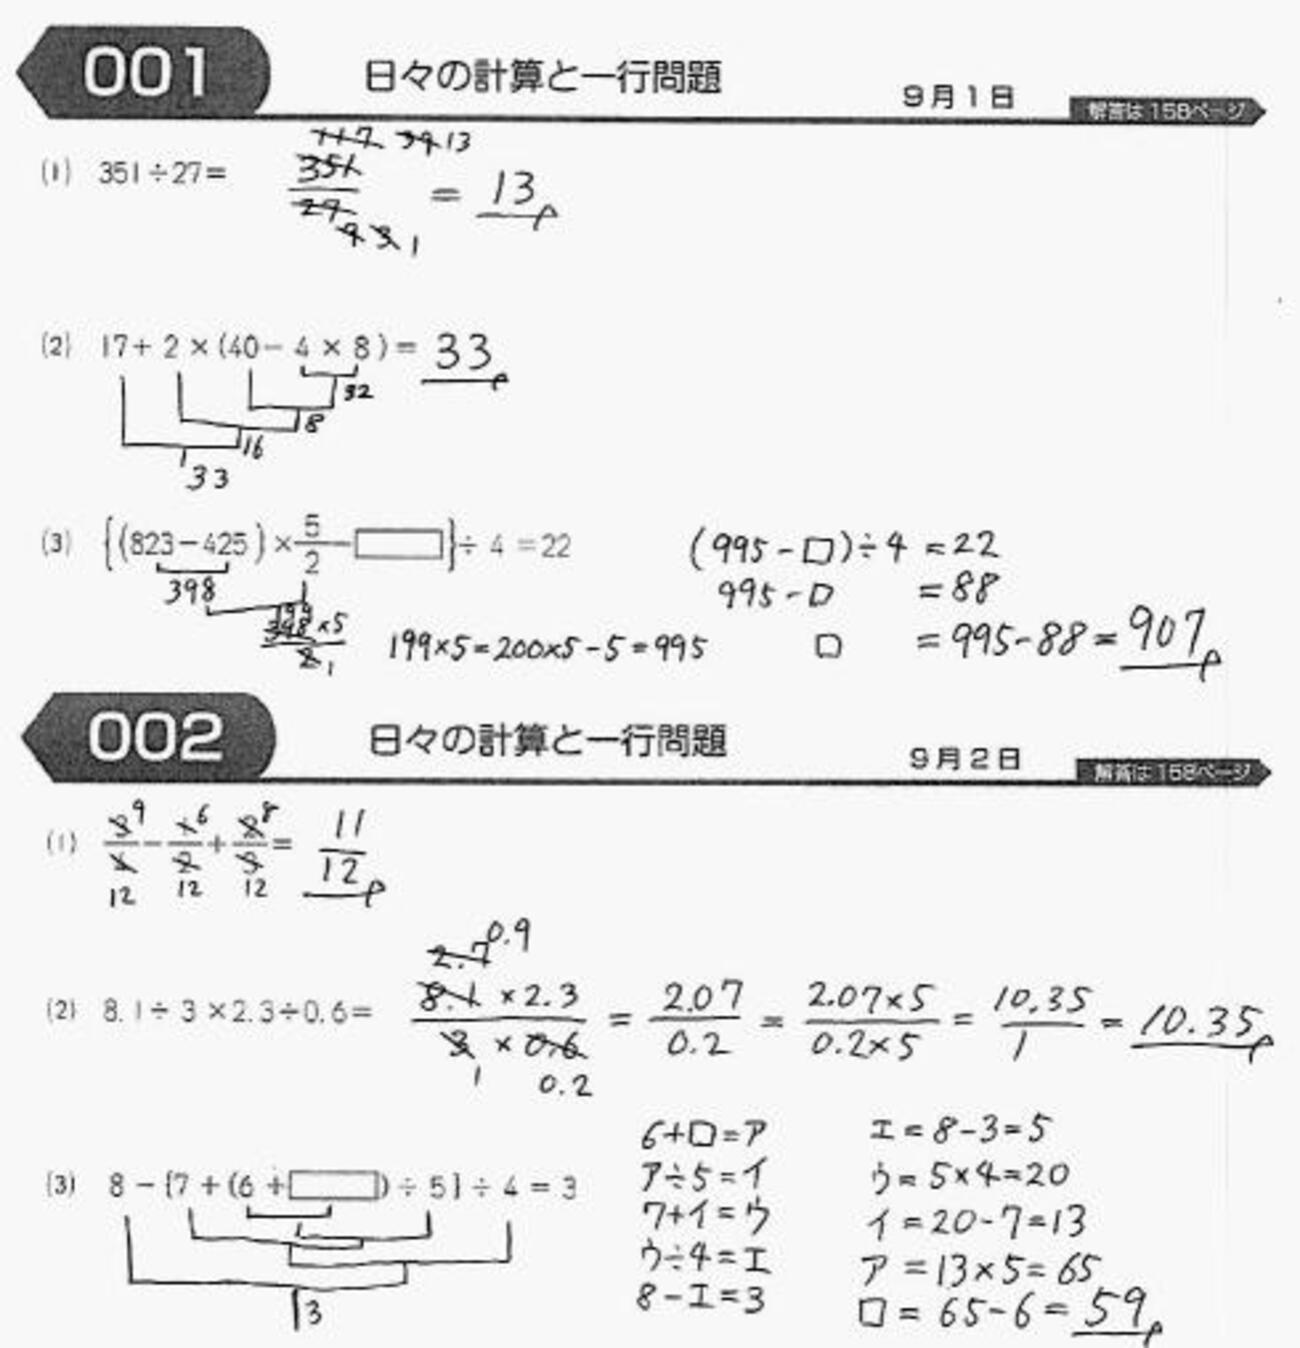 001 日々の計算と一行問題 9月1日 解答は158ページ
117 39 13
(1) 351÷27= 351/27 = 13
9 3 1
(2) 17+2×(40-4×8)= 33
32
8
16
33
(3) {(823-425)×5/2-□}÷4=22 (995-□)÷4=22
398 995-□=88
199
398×5/2 199×5=200×5-5=995 □=995-88=907
1
002 日々の計算と一行問題 9月2日 解答は158ページ
9 6 8
(1) 3/4-1/2+2/3= 11/12
12 12 12
2.7 0.9
(2) 8.1÷3×2.3÷0.6= 8.1×2.3/3×0.6 = 2.07/0.2 = 2.07×5/0.2×5 = 10.35/1 = 10.35
1 0.2
(3) 8-{7+(6+□)÷5}÷4=3
3
6+□=ア
ア÷5=イ
7+イ=ウ
ウ÷4=エ
8-エ=3
エ=8-3=5
ウ=5×4=20
イ=20-7=13
ア=13×5=65
□=65-6=59